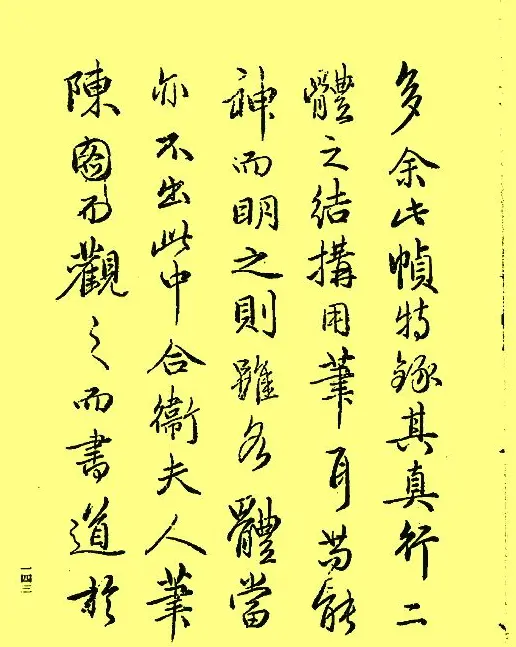 多余此幀特錄其真行二
體之結構用筆耳苟能
神而明之則雖各體當
亦不出此中合衛夫人筆
陳圖而觀之而書道於
一四三